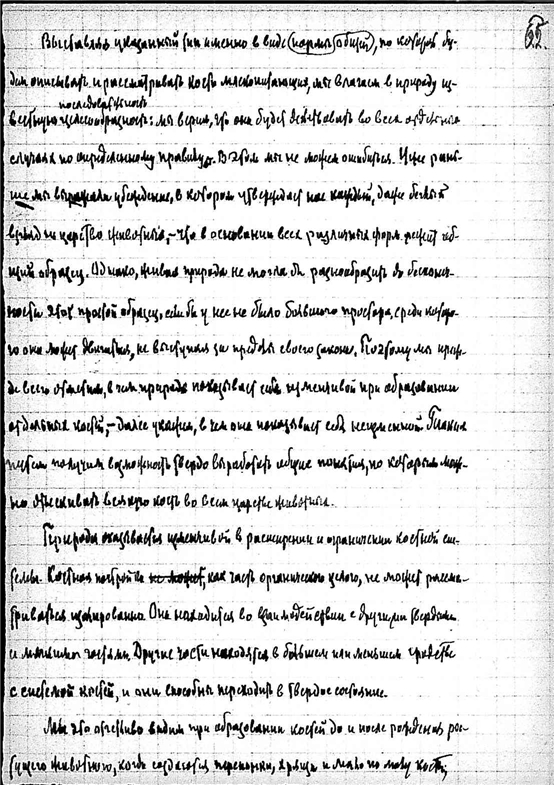 65
Выставляя указанный тип именно в виде нормы общей, по которой бу-
дем описывать и рассматривать кости млекопитающих, мы влагаем в природу из-
последовательность
вестную целесообразность: мы верим, что она будет действовать во всех отдельных
случаях по определенному правилу. В этом мы не можем ошибиться. Уже рань-
ше мы выражали убеждение, в котором утверждает нас каждый, даже беглый
взгляд на царство животных, – что в основании всех различных форм лежит об-
щий образец. Однако, живая природа не могла бы разнообразить до бесконеч-
ности этот простой образец, если бы у нее не было большого простора, среди которо-
го она может двигаться, не выступая за пределы своего закона. Поэтому мы преж-
де всего отметим, в чем природа показывает себя изменчивой при образовании
отдельных костей, – далее укажем, в чем она показывает себя неизменной. Таким
путем получим возможность твердо выработать общие понятия, по которым мож-
но отыскивать всякую кость во всем царстве животных.
Природа оказывается изменчивой в расширении и ограничении костной сис-
темы. Костная постройка не может, как часть органического целого, не может рассма-
триваться изолированно. Она находится во взаимодействии с другими твердыми
и мягкими частями. Другие части находятся в большем или меньшем сродстве
с системой костей, и они способны переходить в твердое состояние.
Мы это отчетливо видим при образовании костей до и после рождения рас-
тущего животного, когда создаются перепонки, хрящи и мало по малу кости,